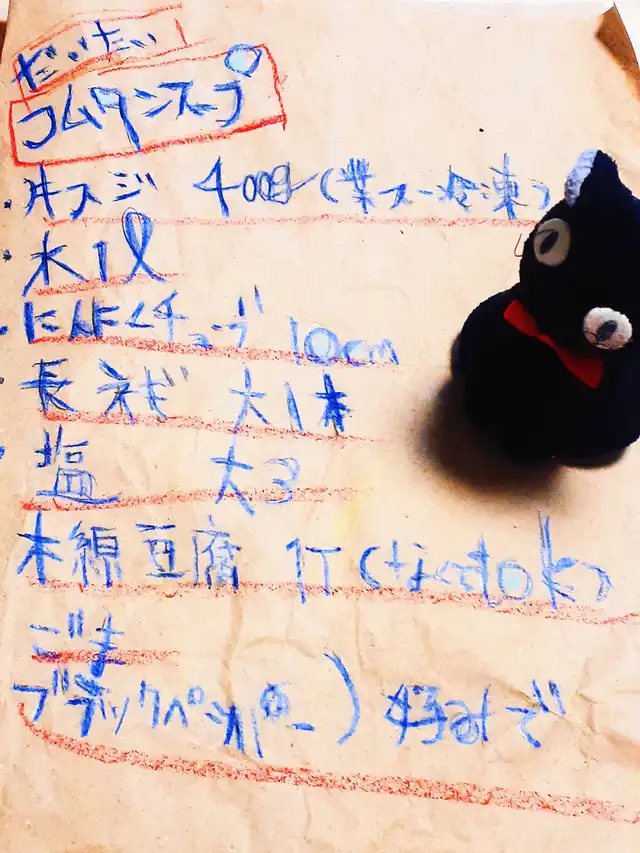 だいたい
コムタンスープ
牛スジ 400g(業スー冷凍)
水1l
にんにくチューブ 10cm
長ネギ 大1本
塩 大3
木綿豆腐 1丁(なくてもok)
ごま
ブラックペッパー)好みで